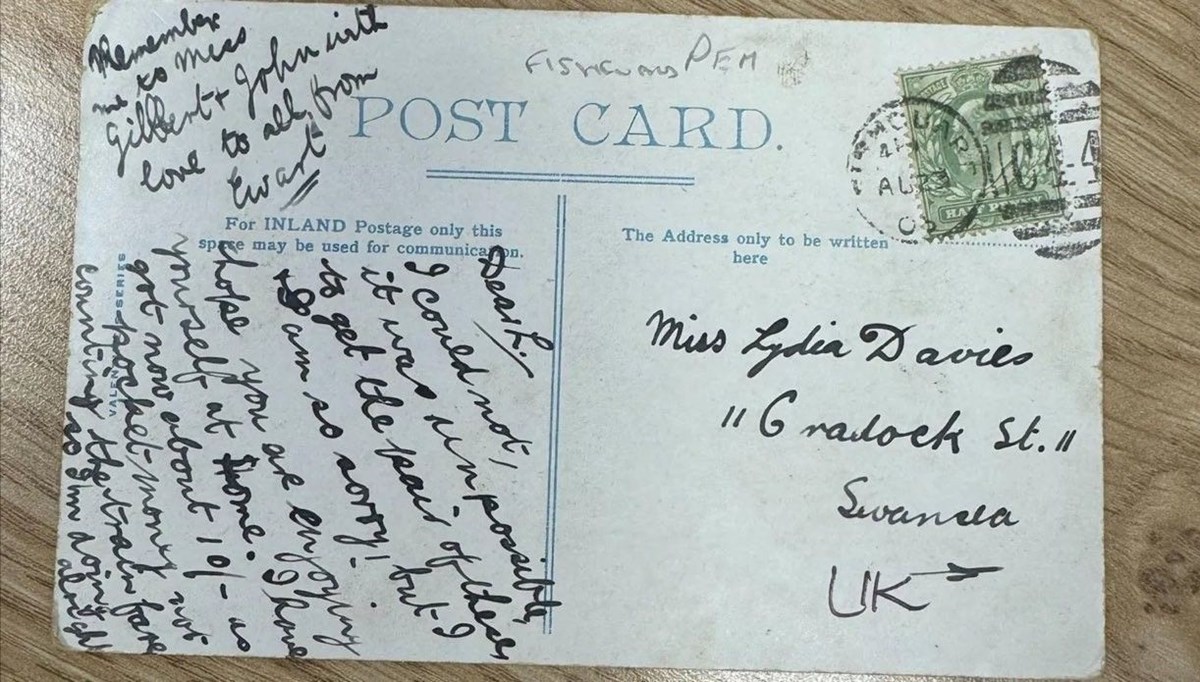 Remember
me to Miss
Gilbert + John with
love to all from
Ewart
PEM
POST CARD.
For INLAND Postage only this
space may be used for communication.
The Address only to be written
here
VALENTINES SERIES
Dear L.,
I could not,
it was unpossible,
to get the pair of these
& I am so sorry! but I
hope you are enjoying
yourself at Home. I have
got now about 10/- as
pocket-mony not
counting the train fare
so I'm doing
alright
Miss Lydia Davies
"6 Cradock St."
Swansea
UK
AU 23
HALFPENNY